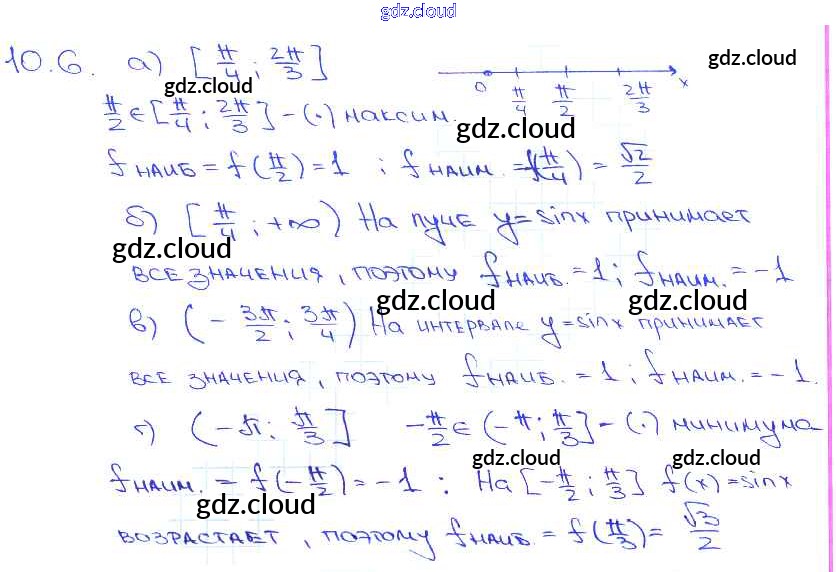 gdz.cloud
10.6. а) [π/4; 2π/3]
0 π/4 π/2 2π/3 x
gdz.cloud
gdz.cloud
π/2 ∈ [π/4; 2π/3] - (·) максим.
gdz.cloud
f наиб = f(π/2) = 1 ; f наим. = f(π/4) = √2/2
б) [π/4; +∞) На луче y = sinx принимает
gdz.cloud
все значения, поэтому f наиб. = 1; f наим. = -1
gdz.cloud
gdz.cloud
в) (-3π/2; 3π/4) На интервале y = sinx принимает
все значения, поэтому f наиб. = 1; f наим. = -1.
г) (-π; π/3] -π/2 ∈ (-π; π/3] - (·) минимума
gdz.cloud
gdz.cloud
f наим. = f(-π/2) = -1 ; На [-π/2; π/3] f(x) = sinx
gdz.cloud
возрастает, поэтому f наиб. = f(π/3) = √3/2